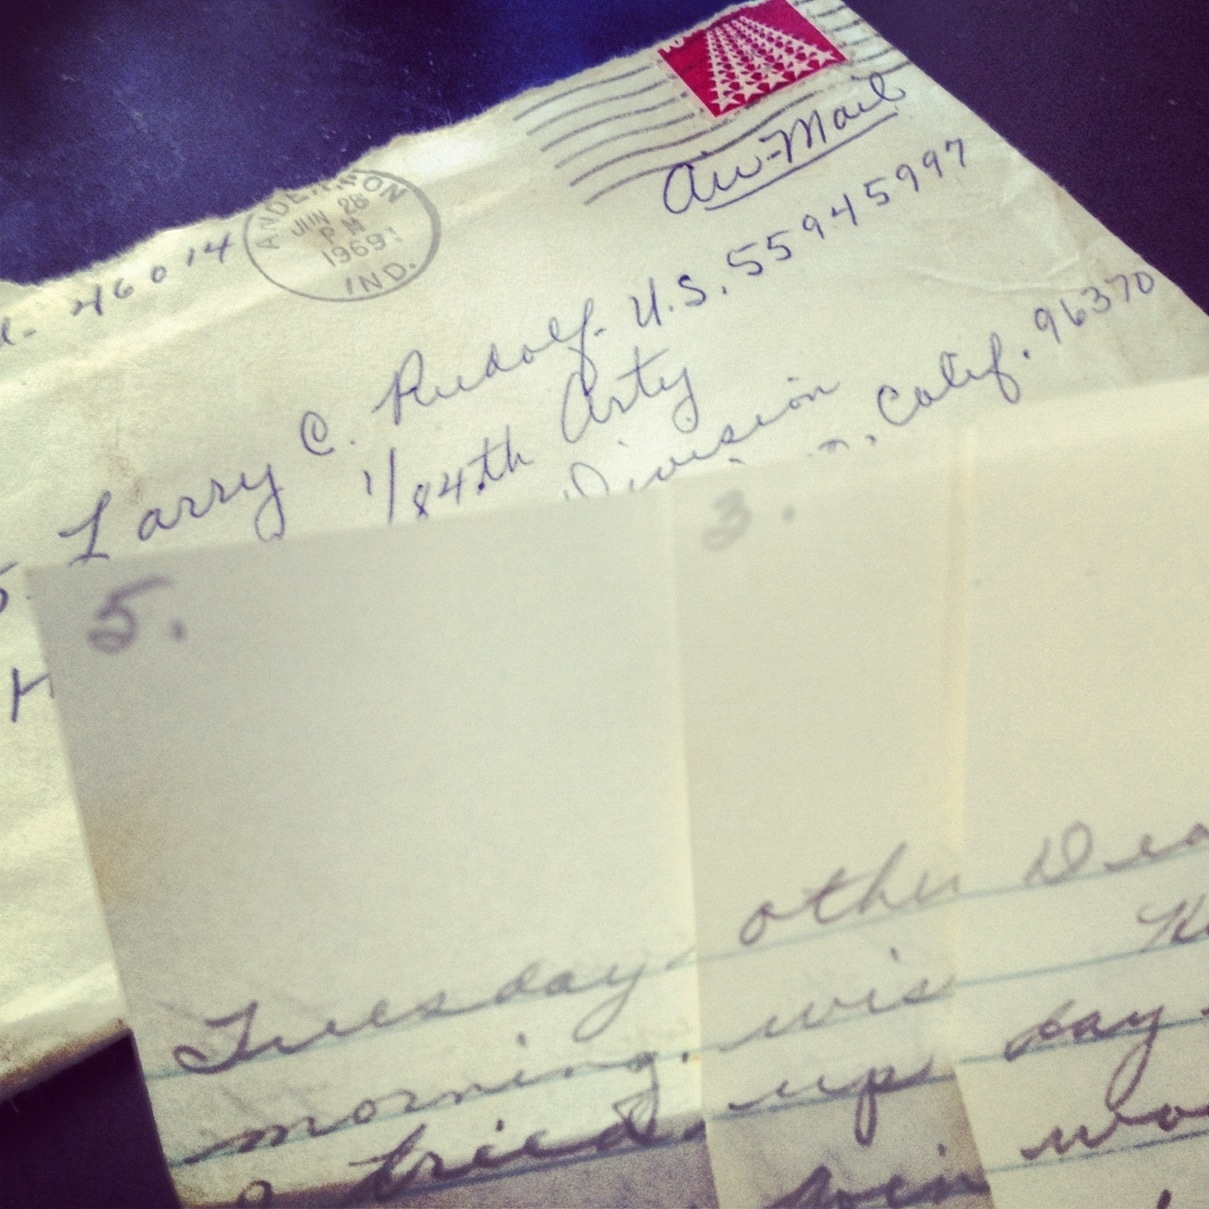 Air-Mail
46014
ANDERSON
JUN 28
PM
1969
IND.
Larry C. Rudolf - U.S. 55945997
1/84th Arty
Division
Calif. 96370
5.
Tuesday
morning.
I tried
3.
other
wis
up
day